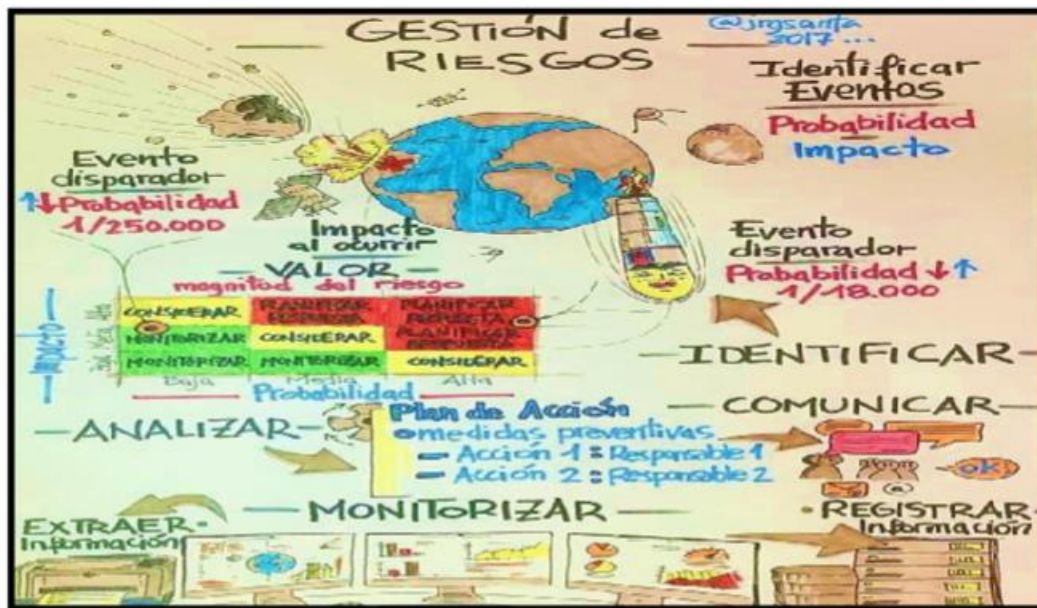 GESTIÓN de
RIESGOS
@jmsanta
2017...
Identificar
Eventos
Probabilidad
Impacto
Evento
disparador
Probabilidad
1/250.000
Impacto
al ocurrir
Evento
disparador
Probabilidad
1/18.000
VALOR
magnitud del riesgo
IMPACTO
Alta
Media
Baja
CONSIDERAR
PLANIFICAR
RESPUESTA
PLANIFICAR
RESPUESTA
MONITORIZAR
CONSIDERAR
PLANIFICAR
RESPUESTA
MONITORIZAR
MONITORIZAR
CONSIDERAR
Baja
Media
Alta
Probabilidad
IDENTIFICAR
ANALIZAR
Plan de Acción
medidas preventivas
Acción 1: Responsable 1
Acción 2: Responsable 2
COMUNICAR
ok
@
MONITORIZAR
EXTRAER
Información
REGISTRAR
Información